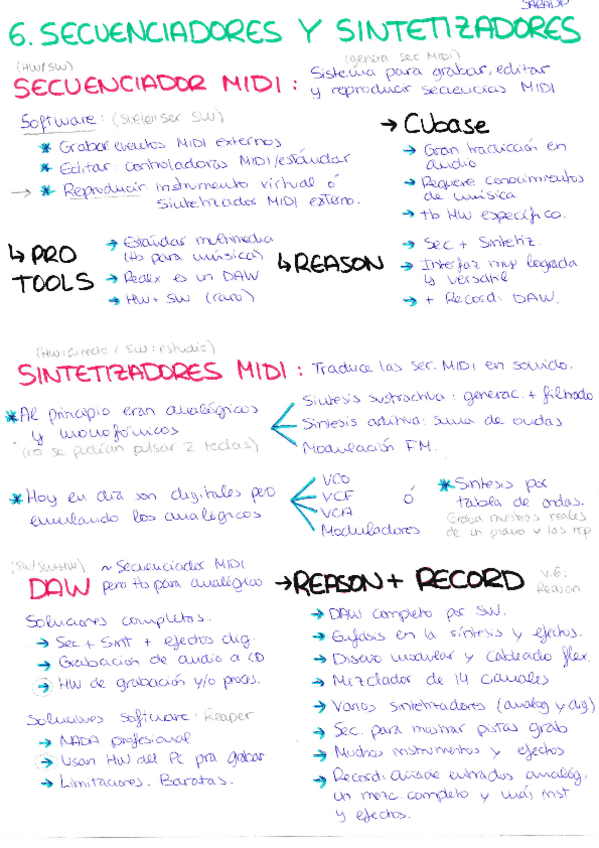 SARADP
6. SECUENCIADORES Y SINTETIZADORES
(HW/SW)
(genera sec MIDI)
SECUENCIADOR MIDI : Sistema para grabar, editar
y reproducir secuencias MIDI
Software: (suelen ser SW)
* Grabar eventos MIDI externos
* Editar: controladoras MIDI/estándar
→ * Reproducir: instrumento virtual ó
sintetizador MIDI externo.
→ CUBASE
→ Gran tradición en
audio
→ Requiere conocimientos
de música
→ tb HW específico.
↳ PRO
TOOLS
→ Estándar multimedia
(tb para música)
→ Realx es un DAW
→ HW + SW (caro)
↳ REASON
→ Sec + Sintetiz.
→ Interfaz muy lograda
y versátil
→ + Record: DAW.
(HW: directo / SW: estudio)
SINTETIZADORES MIDI : Traduce las ser. MIDI en sonido.
* Al principio eran analógicos
y monofónicos
(no se podían pulsar 2 teclas)
Síntesis sustractiva: generac. + filtrado
Síntesis aditiva: suma de ondas
Modulación FM.
* Hoy en día son digitales pero
emulando los analógicos
VCO
VCF
VCA
Moduladores
ó
* Síntesis por
tabla de ondas.
Graba muestras reales
de un piano y las rep
(SW/SW+HW)
~ Secuenciador MIDI
DAW pero tb para analógico
Soluciones completas.
→ Sec + Sint + efectos dig.
→ Grabación de audio a CD
→ HW de grabación y/o proces.
Soluciones software: Reaper
→ NADA profesional
→ Usan HW del PC pra grabar
→ Limitaciones. Baratas.
→ REASON + RECORD
v.6:
Reason
→ DAW completo por SW.
→ Énfasis en la síntesis y efectos.
→ Diseño modular y cableado flex.
→ Mezclador de 14 canales
→ Varios sintetizadores (analog y dig)
→ Sec. para mostrar pistas grab
→ Muchos instrumentos y efectos
→ Record: añade entradas analóg,
un mezc. completo y más inst
y efectos.